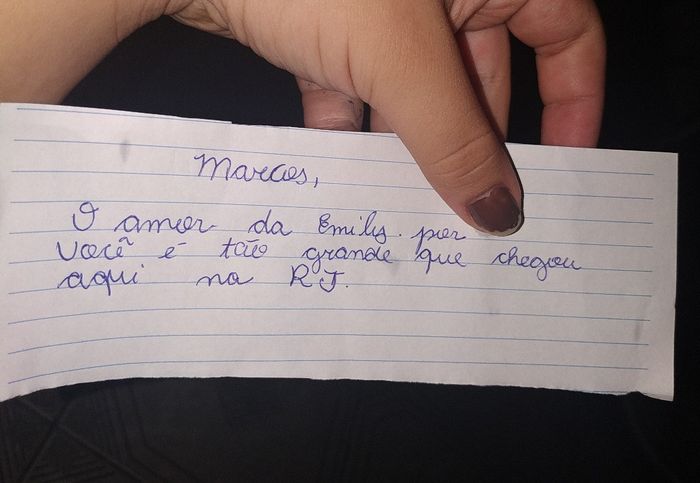 Marcos,
O amor da Emily por
você é tão grande que chegou
aqui na RJ.